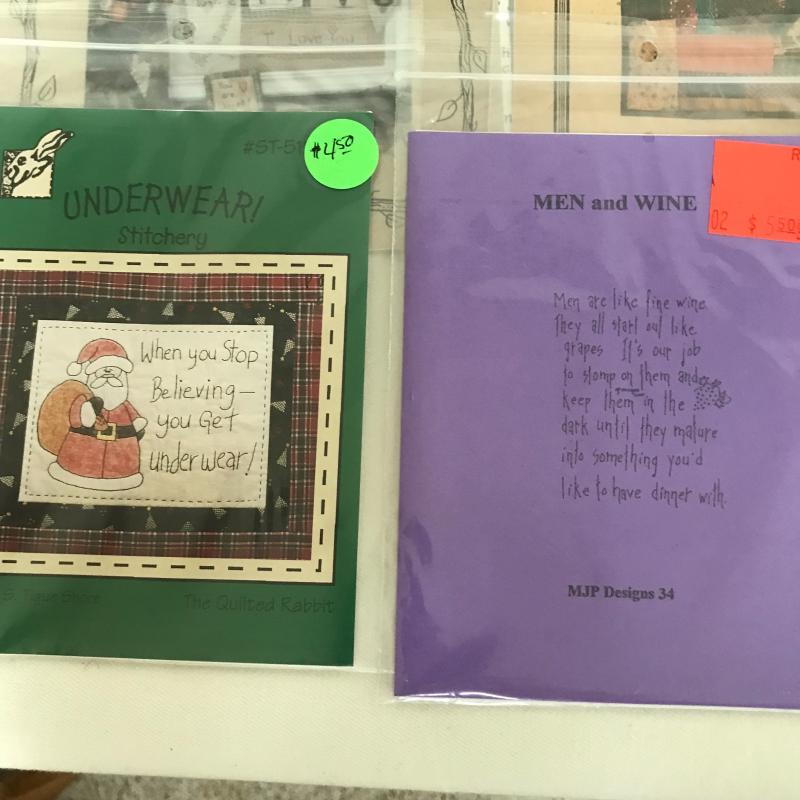 I Love You
#ST-51
#4.50
UNDERWEAR!
Stitchery
When you Stop
Believing—
you Get
underwear!
The Quilted Rabbit
R
02 $ 5.50
MEN and WINE
Men are like fine wine.
They all start out like
grapes It's our job
to stomp on them and
keep them in the
dark until they mature
into something you'd
like to have dinner with.
MJP Designs 34